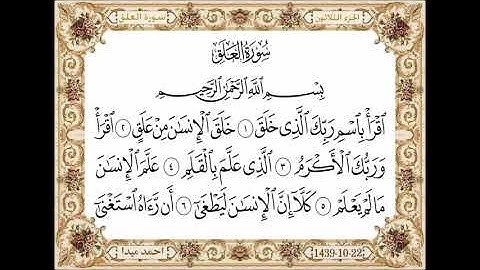 سورة العلق
الجزء الثلاثون
سُورَةُ العَلَقِ
بِسْمِ اللَّهِ الرَّحْمَٰنِ الرَّحِيمِ
ٱقْرَأْ بِٱسْمِ رَبِّكَ ٱلَّذِى خَلَقَ ١ خَلَقَ ٱلْإِنسَٰنَ مِنْ عَلَقٍ ٢ ٱقْرَأْ
وَرَبُّكَ ٱلْأَكْرَمُ ٣ ٱلَّذِى عَلَّمَ بِٱلْقَلَمِ ٤ عَلَّمَ ٱلْإِنسَٰنَ
مَا لَمْ يَعْلَمْ ٥ كَلَّآ إِنَّ ٱلْإِنسَٰنَ لَيَطْغَىٰٓ ٦ أَن رَّءَاهُ ٱسْتَغْنَىٰٓ
احمد ميدا
1439-10-22